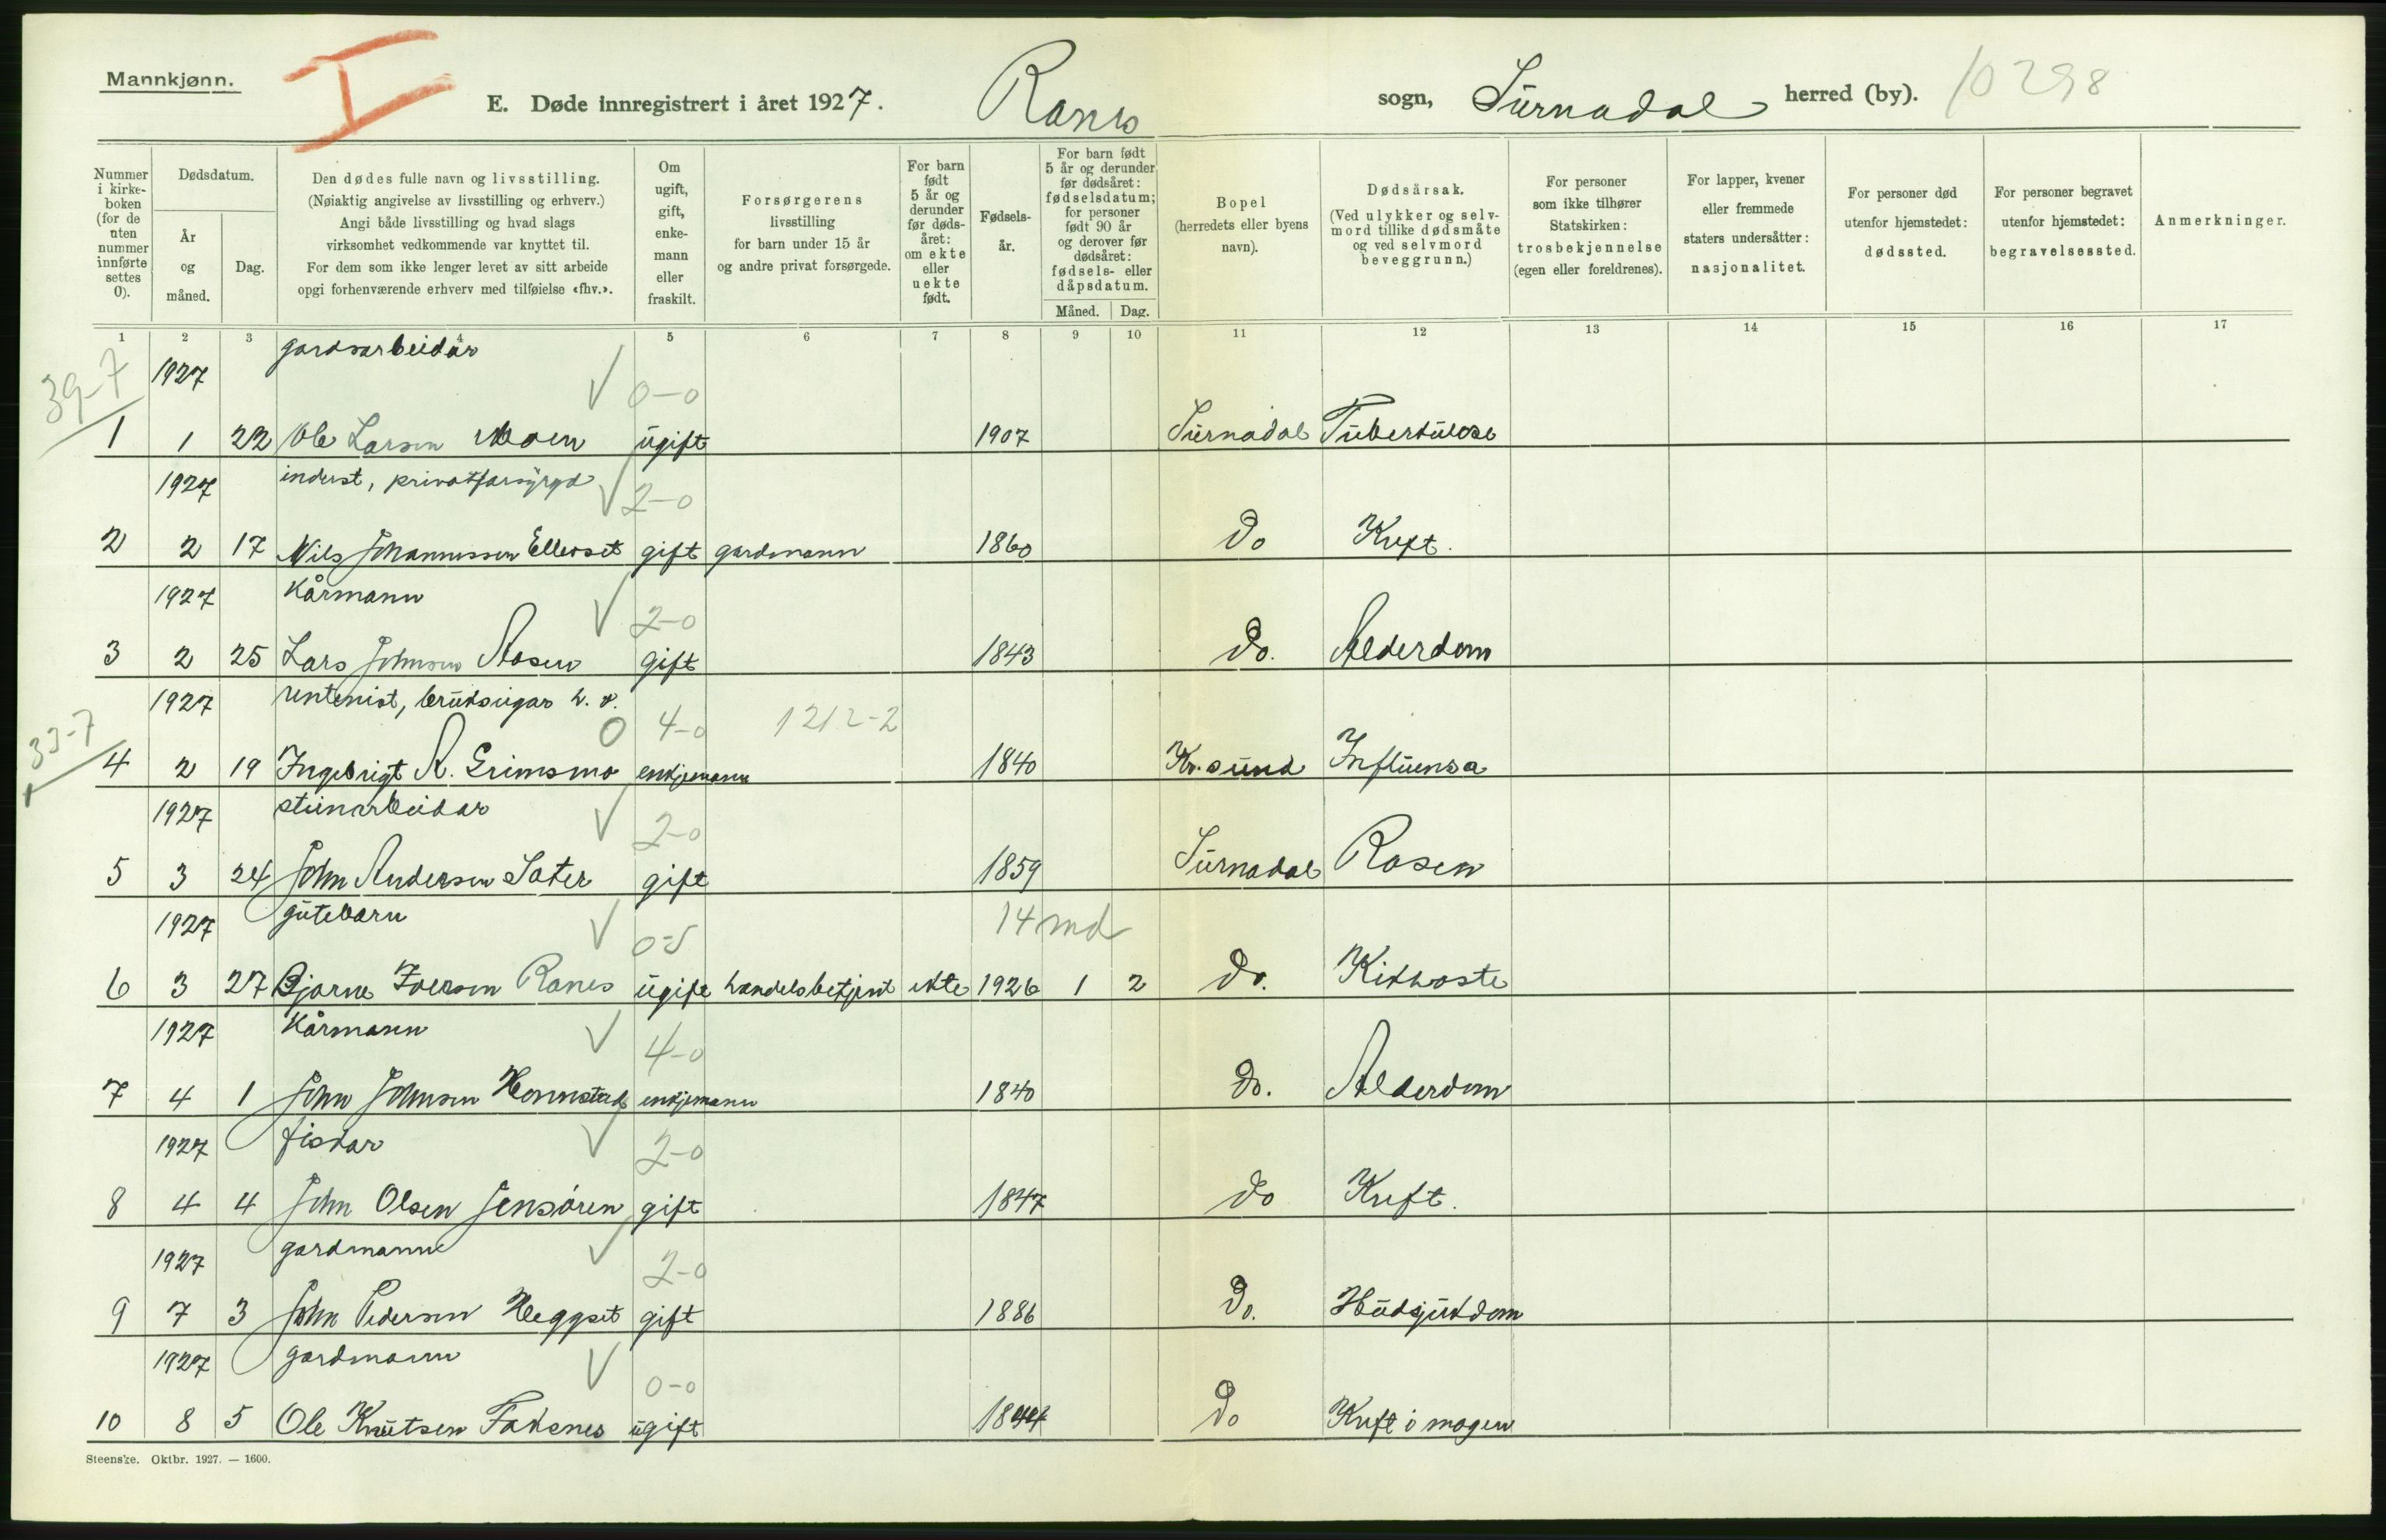 Mannkjønn.
I
E. Døde innregistrert i året 1927. Ranes sogn, Surnadal herred (by). 10298
Nummer i kirkeboken (for de uten nummer innførte settes 0).
Dødsdatum.
År og måned.
Dag.
Den dødes fulle navn og livsstilling.
(Nøiaktig angivelse av livsstilling og erhverv.)
Angi både livsstilling og hvad slags
virksomhet vedkommende var knyttet til.
For dem som ikke lenger levet av sitt arbeide
opgi forhenværende erhverv med tilføielse «fhv.».
Om ugift, gift, enkemann eller fraskilt.
Forsørgerens
livsstilling
for barn under 15 år
og andre privat forsørgede.
For barn født 5 år og derunder før dødsåret: om ekte eller uekte født.
Fødselsår.
For barn født 5 år og derunder før dødsåret: fødselsdatum; for personer født 90 år og derover før dødsåret: fødsels- eller dåpsdatum.
Måned.
Dag.
Bopel
(herredets eller byens navn).
Dødsårsak.
(Ved ulykker og selvmord tillike dødsmåte og ved selvmord beveggrunn.)
For personer som ikke tilhører Statskirken: trosbekjennelse (egen eller foreldrenes).
For lapper, kvener eller fremmede staters undersåtter: nasjonalitet.
For personer død utenfor hjemstedet: dødssted.
For personer begravet utenfor hjemstedet: begravelsessted.
Anmerkninger.
1 2 3 4 5 6 7 8 9 10 11 12 13 14 15 16 17
39-7 1927 gardsarbeidar 0-0
1 1 22 Ole Larsen Moen ugift 1907 Surnadal Tuberkulose
1927 inderst, privatforsyrgd 2-0
2 2 17 Nils Johannessen Ellevset gift gardmann 1860 do Kreft.
1927 Kårmann 2-0
3 2 25 Lars Johnsen Aasen gift 1843 do. Alderdom
1927 rentenist, brukseigar h. v. 0 4-0 1212-2
33-7
4 2 19 Ingebrigt A. Grimsmo enkjemann 1840 Kr.sund Influensa
1927 steinarbeidar 2-0
5 3 24 John Andersen Sæter gift 1859 Surnadal Rosen
1927 gutebarn 0-5 14 md
6 3 27 Bjarne Iversen Ranes ugift handelsbetjent ekte 1926 1 2 do. Kikhoste
1927 Kårmann 4-0
7 4 1 John Johnsen Honnstad enkjemann 1840 do. Alderdom
1927 fiskar 2-0
8 4 4 John Olsen Jensøren gift 1847 do Kreft.
1927 gardmann 2-0
9 7 3 John Pedersen Heggset gift 1886 do. Hudsjukdom
1927 gardmann 0-0
10 8 5 Ole Knutsen Faksnes ugift do Kreft i magen
Steenske. Oktbr. 1927. — 1600.